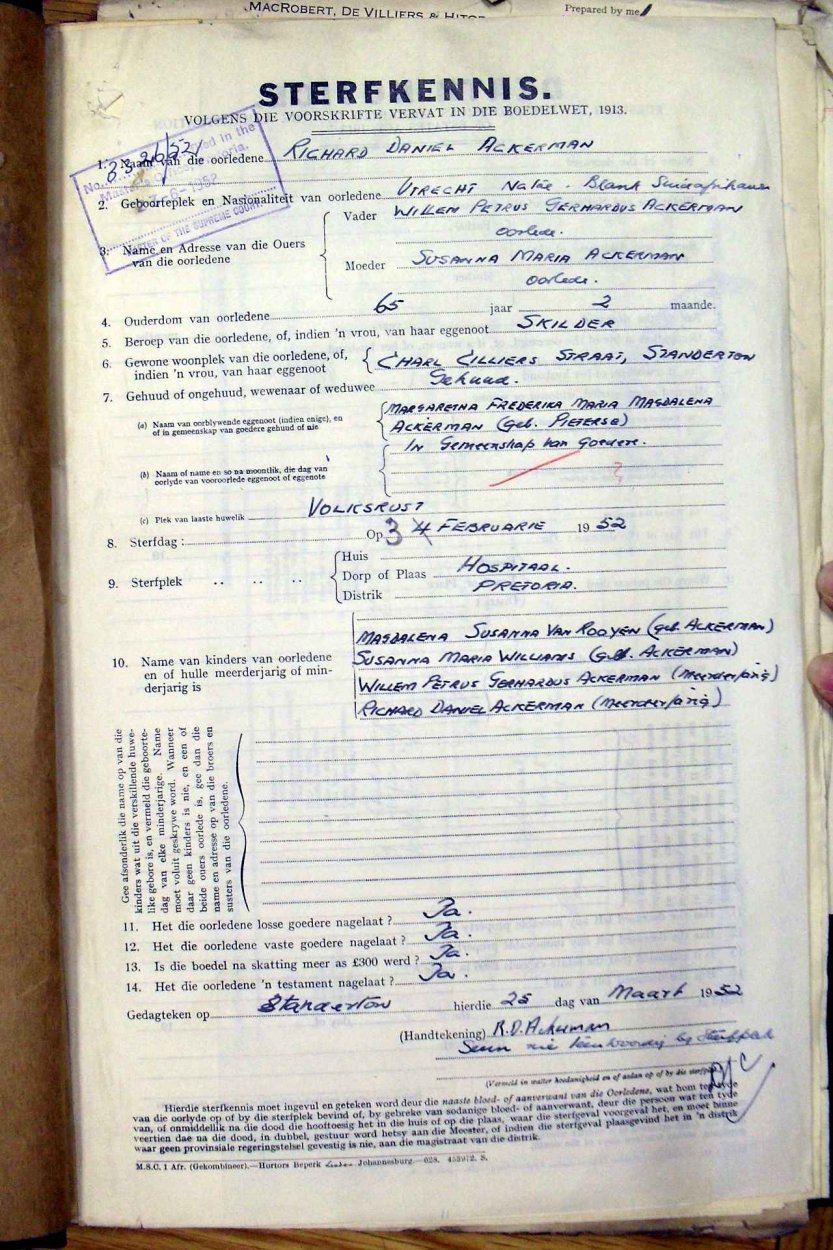 MACROBERT, DE VILLIERS &
Prepared by me
STERFKENNIS.
VOLGENS DIE VOORSKRIFTE VERVAT IN DIE BOEDELWET, 1913.
1. Naam van die oorledene RICHARD DANIEL ACKERMAN
No. 3326/52
Master's
6-1952
MASTER OF THE SUPREME COURT
2. Geboorteplek en Nasionaliteit van oorledene UTRECHT Natal. Blank Suidafrikaner
3. Name en Adresse van die Ouers van die oorledene
Vader WILLEM PETRUS GERHARDUS ACKERMAN
oorlede.
Moeder SUSANNA MARIA ACKERMAN
oorlede.
4. Ouderdom van oorledene 65 jaar 2 maande.
5. Beroep van die oorledene, of, indien 'n vrou, van haar eggenoot SKILDER
6. Gewone woonplek van die oorledene, of, indien 'n vrou, van haar eggenoot CHARL CILLIERS STRAAT, STANDERTON
7. Gehuud of ongehuud, wewenaar of weduwee Gehuud.
(a) Naam van oorblywende eggenoot (indien enige), en of in gemeenskap van goedere gehuud of nie
MARGARETHA FREDERIKA MARIA MAGDALENA
ACKERMAN (geb. PIETERSE)
In Gemeenskap van Goedere.
(b) Naam of name en so na moontlik, die dag van oorlyde van vooroorlede eggenoot of eggenote
?
(c) Plek van laaste huwelik VOLKSRUST
8. Sterfdag: Op 3 4 FEBRUARIE 1952
9. Sterfplek
Huis
Dorp of Plaas HOSPITAAL.
Distrik PRETORIA.
10. Name van kinders van oorledene en of hulle meerderjarig of minderjarig is
MAGDALENA SUSANNA VAN ROOYEN (geb. ACKERMAN)
SUSANNA MARIA WILLIAMS (geb. ACKERMAN)
WILLEM PETRUS GERHARDUS ACKERMAN (meerderjarig)
RICHARD DANIEL ACKERMAN (meerderjarig)
Gee afsonderlik die name op van die
kinders wat uit die verskillende huwe-
like gebore is, en vermeld die geboorte-
dag van elke minderjarige. Name
moet voluit geskrywe word. Wanneer
daar geen kinders is nie, en een of
beide ouers oorlede is, gee dan die
name en adresse op van die broers en
susters van die oorledene.
11. Het die oorledene losse goedere nagelaat? Ja.
12. Het die oorledene vaste goedere nagelaat? Ja.
13. Is die boedel na skatting meer as £300 werd? Ja.
14. Het die oorledene 'n testament nagelaat? Ja.
Gedagteken op Standerton hierdie 25 dag van Maart 1952
(Handtekening) R.D. Ackerman
Seun nie teenwoordig by sterfplek
(Vermeld in watter hoedanigheid en of aldan op of by die sterfplek
Hierdie sterfkennis moet ingevul en geteken word deur die naaste bloed- of aanverwant van die Oorledene, wat hom ten tyde
van die oorlyde op of by die sterfplek bevind of, by gebreke van sodanige bloed- of aanverwant, deur die persoon wat ten tyde
van, of onmiddelik na die dood die hooftoesig het in die huis of op die plaas, waar die sterfgeval voorgeval het, en moet binne
veertien dae na die dood, in dubbel, gestuur word hetsy aan die Meester, of indien die sterfgeval plaasgevind het in 'n distrik
waar geen provinsiale regeringstelsel gevestig is nie, aan die magistraat van die distrik.
M.S.C. 1 Afr. (Gekombineer).—Hortors Beperk Johannesburg.—028. 453972. S.